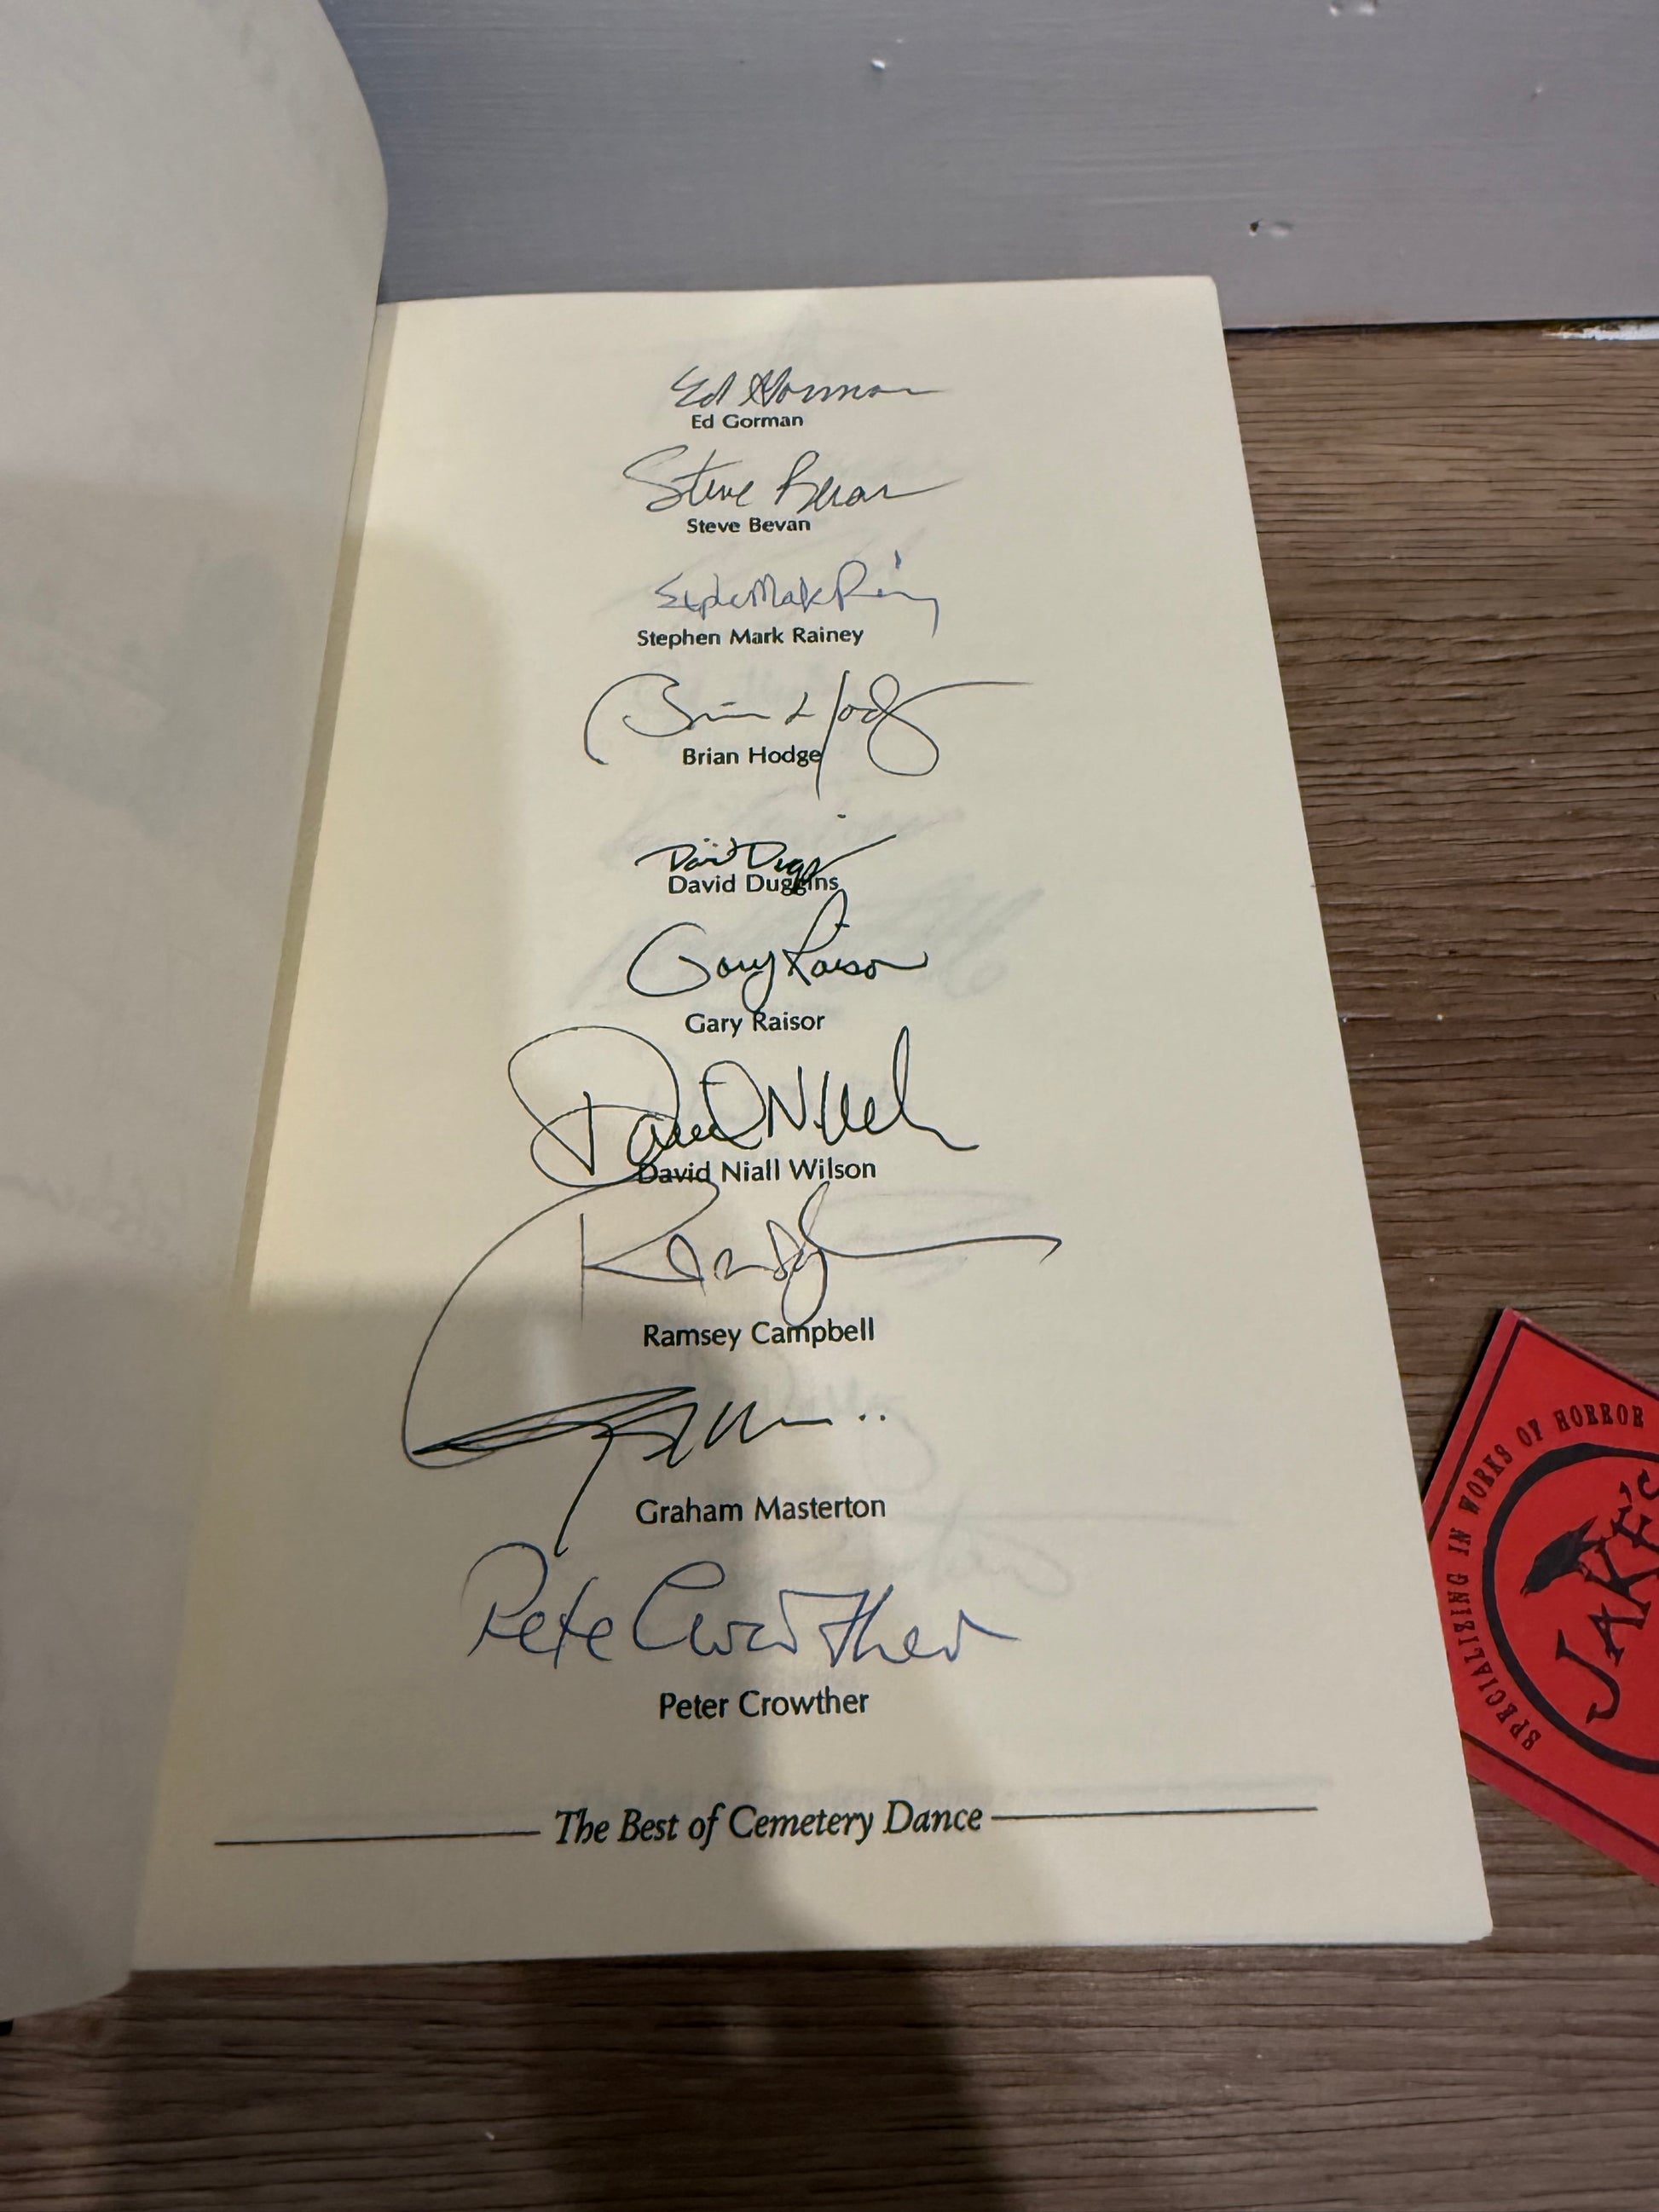 Ed Gorman
Ed Gorman
Steve Bevan
Steve Bevan
Stephen Mark Rainey
Stephen Mark Rainey
Brian Hodge
Brian Hodge
David Duggins
David Duggins
Gary Raisor
Gary Raisor
David Niall Wilson
Ramsey Campbell
Graham Masterton
Pete Crowther
Peter Crowther
The Best of Cemetery Dance
SPECIALIZING IN WORKS OF HORROR
JAKE'S